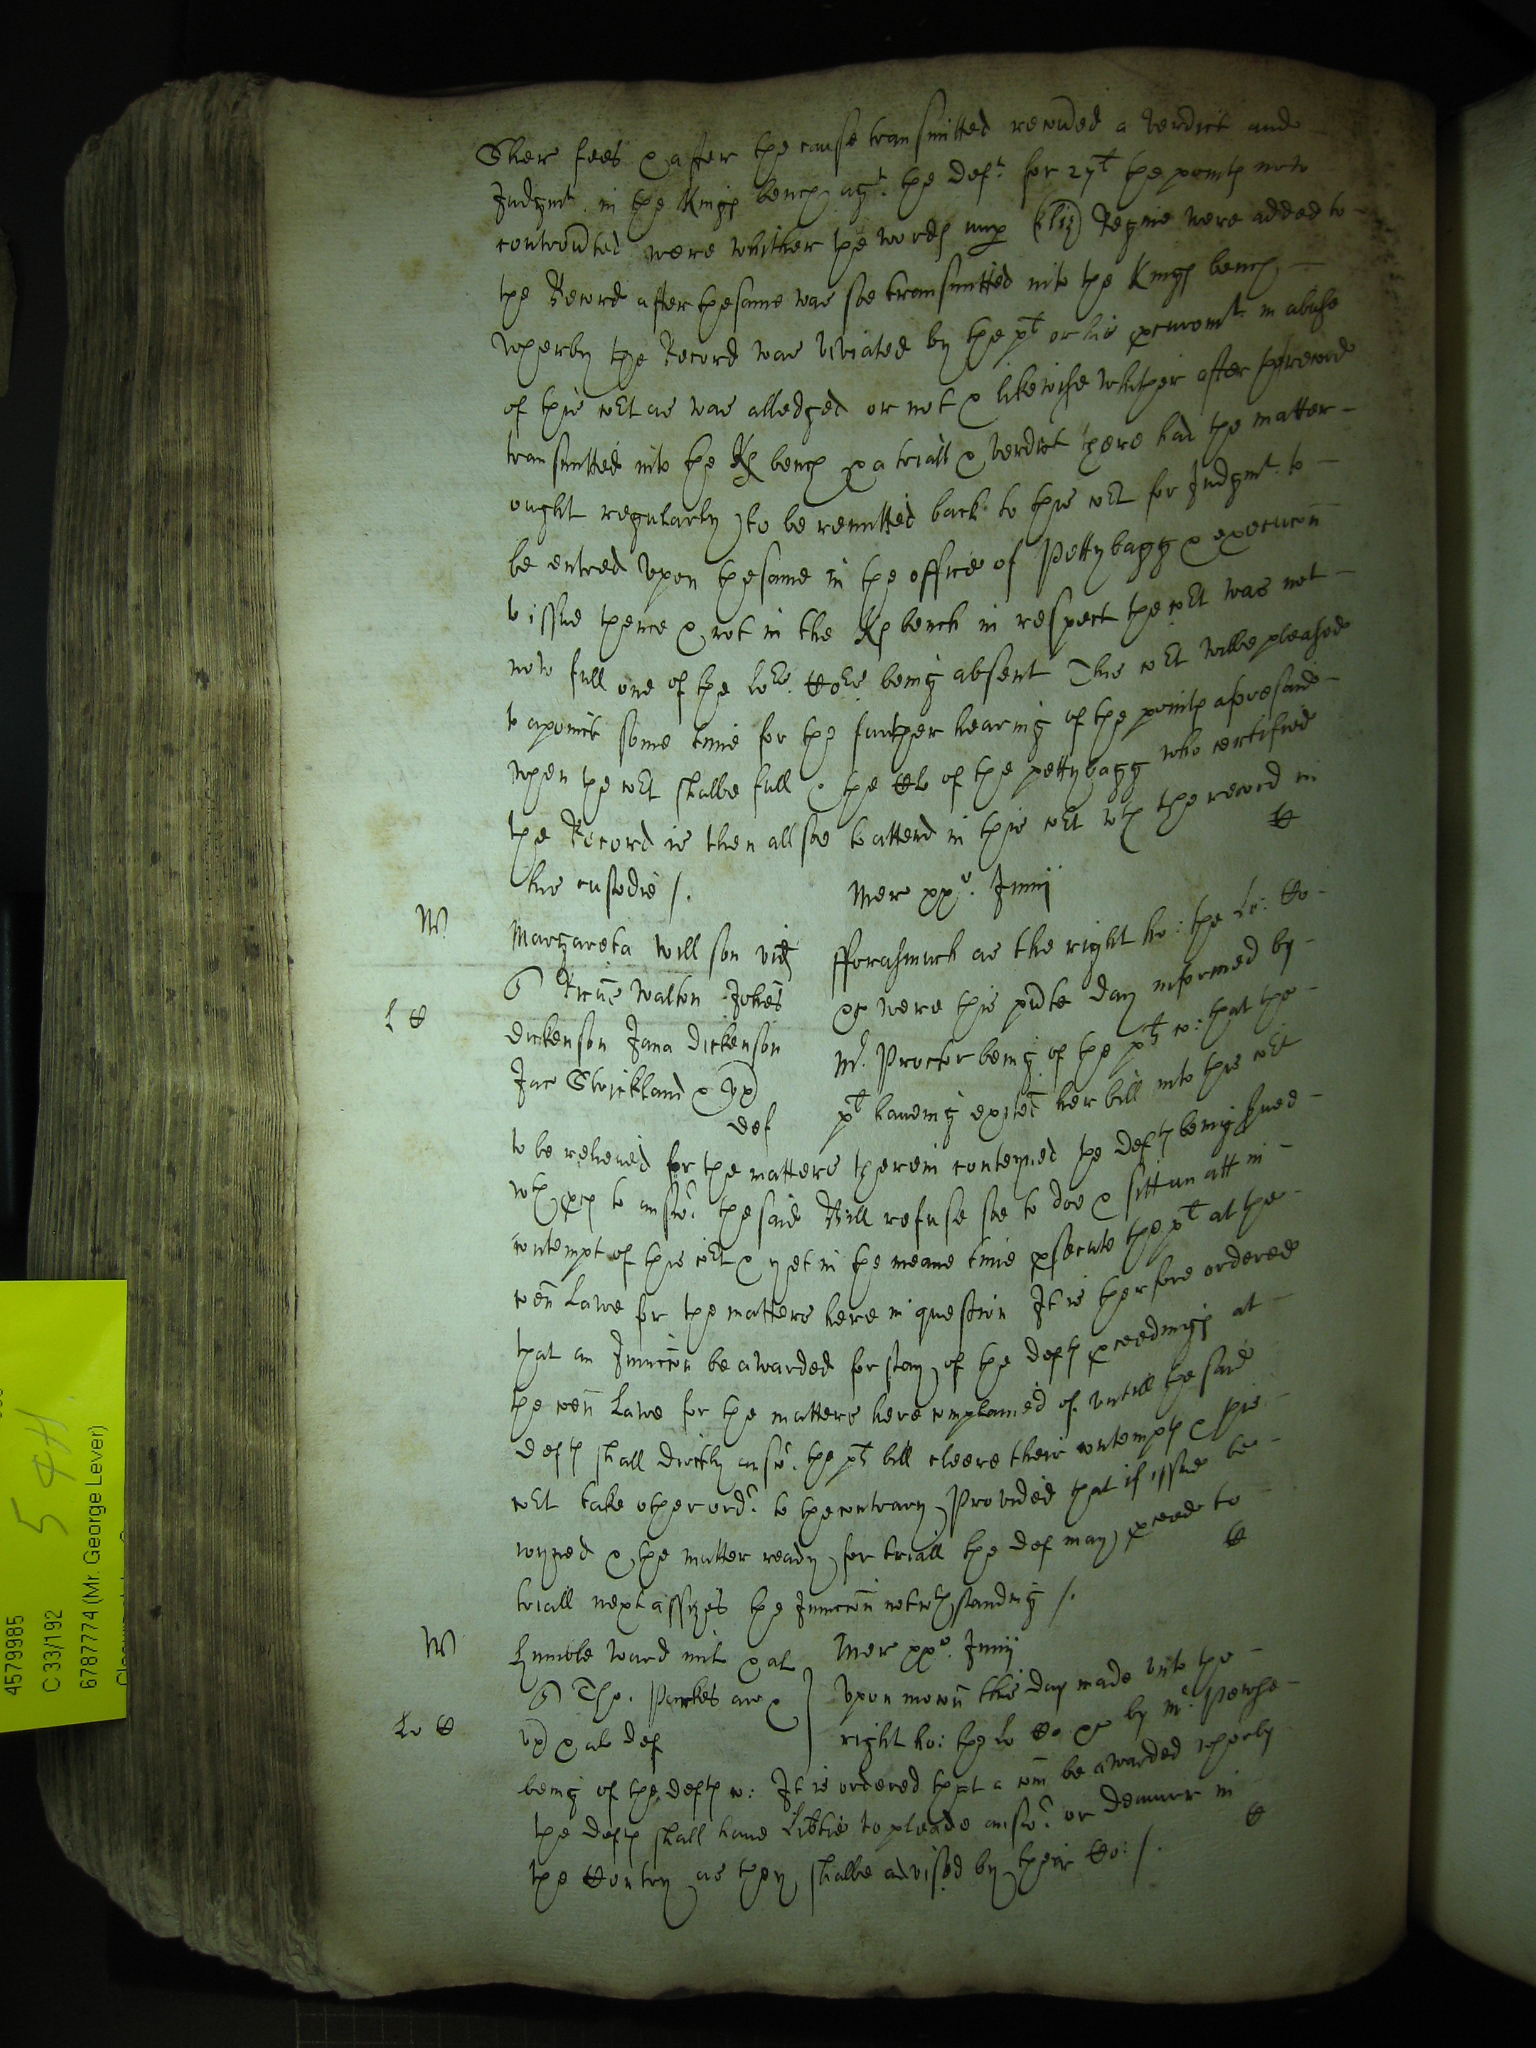 Sher fees & after the cause transmitted recoued a verdict and
Judgmt. in the Kings bench agt. the deft. for 27l the points now
controuted were whither the words nup Eliz Regine were added to
the Record after the same was soe transmitted into the Kings bench
wherby the Record was viciated by the plt or his pcuremt. in abuse
of this cort as was alledged or not & likewise whither after the record
transmitted into the Ks bench & a triall & verdict there had the matter
ought regularly to be remitted back to this cort for Judgmt. to
be entred vpon the same in the office of Pettybagg & execucon
to issue thence & not in the Ks bench in respect the cort was not
now full one of the Lo: Cors being absent This cort wilbe pleased
to apoint some time for the further hearing of the points aforesaid
when the cort shalbe full & the Cl of the pettybagg who certified
the Record is then alsoe to attend in this cort wth the record in
his custodie /.
Mer xxo. Junij
W.
Margareta Willson vid
Ricus Walton Johes
Dickenson Jana Dickenson
Jac Strickland & vx
def
fforasmuch as the right ho: the Lo: Co
were this pnte day informed by
Mr. Proctor being of the plts co: that the
plt haueing exited her bill into this cort
to be releiued for the matters therein conteyned the defts being serued
wth pces to answr. the said Bill refuse soe to doe & sitt in att in
contempt of this cort & yet in the meane time psecute the plt at the
comn Lawe for the matters here in question It is therfore ordered
that an Iniuncon be awarded for stay of the defts pceedings at
the comn Lawe for the matters here complained of. vntill the said
defts shall dirctly answr. the plts bill cleere their contempts & this
cort take other ordr. to the contrary Provided that if issue be
ioyned & the matter ready for triall the def may pceede to
triall next assizes the Iniuncon notwthstanding /.
W
Humble Ward mil & al
Tho. Parkes ar &
vx & als def
Mer xxo. Junij
Vpon mocon this day made vnto the
right ho: the Lo Co by Mr. Pewse
being of the defts co: It is ordered that a comn be awarded wherby
the defts shall haue libtie to pleade answr. or demurr in
the Contry as they shalbe advised by their Co: /.
4579985
C 33/192
6787774 (Mr. George Lever)